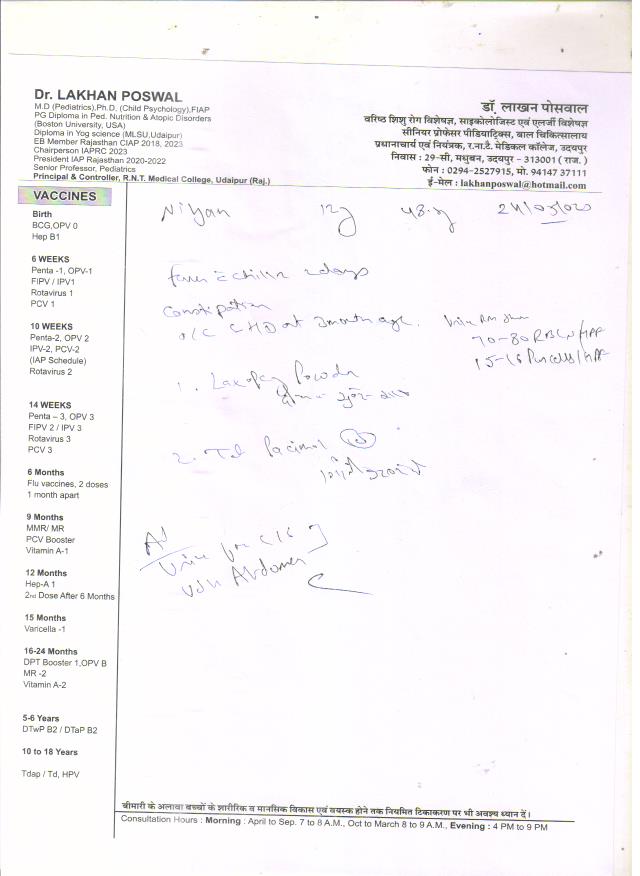 Dr. LAKHAN POSWAL
M.D (Pediatrics),Ph.D. (Child Psychology),FIAP
PG Diploma in Ped. Nutrition & Atopic Disorders
(Boston University, USA)
Diploma in Yog science (MLSU,Udaipur)
EB Member Rajasthan CIAP 2018, 2023
Chairperson IAPRC 2023
President IAP Rajasthan 2020-2022
Senior Professor, Pediatrics
Principal & Controller, R.N.T. Medical College, Udaipur (Raj.)
डॉ. लाखन पोसवाल
वरिष्ठ शिशु रोग विशेषज्ञ, साइकोलोजिस्ट एवं एलर्जी विशेषज्ञ
सीनियर प्रोफेसर पीडियाट्रिक्स, बाल चिकित्सालाय
प्रधानाचार्य एवं नियंत्रक, र.ना.टै. मेडिकल कॉलेज, उदयपुर
निवास : 29-सी, मधुबन, उदयपुर - 313001 ( राज. )
फोन : 0294-2527915, मो. 94147 37111
ई-मेल : lakhanposwal@hotmail.com
VACCINES
Birth
BCG,OPV 0
Hep B1
6 WEEKS
Penta -1, OPV-1
FIPV / IPV1
Rotavirus 1
PCV 1
10 WEEKS
Penta-2, OPV 2
IPV-2, PCV-2
(IAP Schedule)
Rotavirus 2
14 WEEKS
Penta – 3, OPV 3
FIPV 2 / IPV 3
Rotavirus 3
PCV 3
6 Months
Flu vaccines, 2 doses
1 month apart
9 Months
MMR/ MR
PCV Booster
Vitamin A-1
12 Months
Hep-A 1
2nd Dose After 6 Months
15 Months
Varicella -1
16-24 Months
DPT Booster 1,OPV B
MR -2
Vitamin A-2
5-6 Years
DTwP B2 / DTaP B2
10 to 18 Years
Tdap / Td, HPV
12y
days
Constipation
70-80 RBC
1. Powder
2.
Urine
Abdomen
बीमारी के अलावा बच्चों के शारीरिक व मानसिक विकास एवं वयस्क होने तक नियमित टिकाकरण पर भी अवश्य ध्यान दें।
Consultation Hours : Morning : April to Sep. 7 to 8 A.M., Oct to March 8 to 9 A.M., Evening : 4 PM to 9 PM